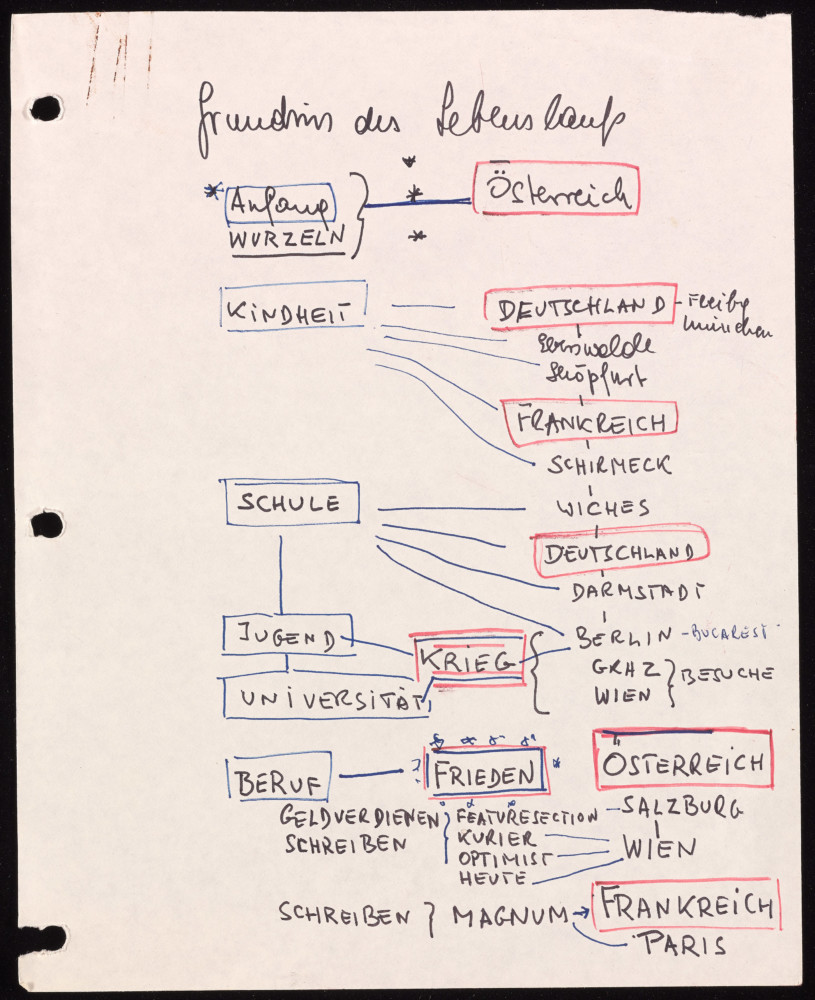 Grundriss des Lebenslaufs
* Anfang } * Österreich
WURZELN
KINDHEIT — DEUTSCHLAND - Freibg
München
Eberswalde
Schöpfurt
FRANKREICH
SCHIRMECK
SCHULE WICHES
DEUTSCHLAND
DARMSTADT
JUGEND BERLIN - BUCAREST
KRIEG { GRAZ } BESUCHE
UNIVERSITÄT WIEN
BERUF — FRIEDEN ÖSTERREICH
GELDVERDIENEN } FEATURESECTION - SALZBURG
SCHREIBEN KURIER WIEN
OPTIMIST
HEUTE
SCHREIBEN } MAGNUM → FRANKREICH
PARIS